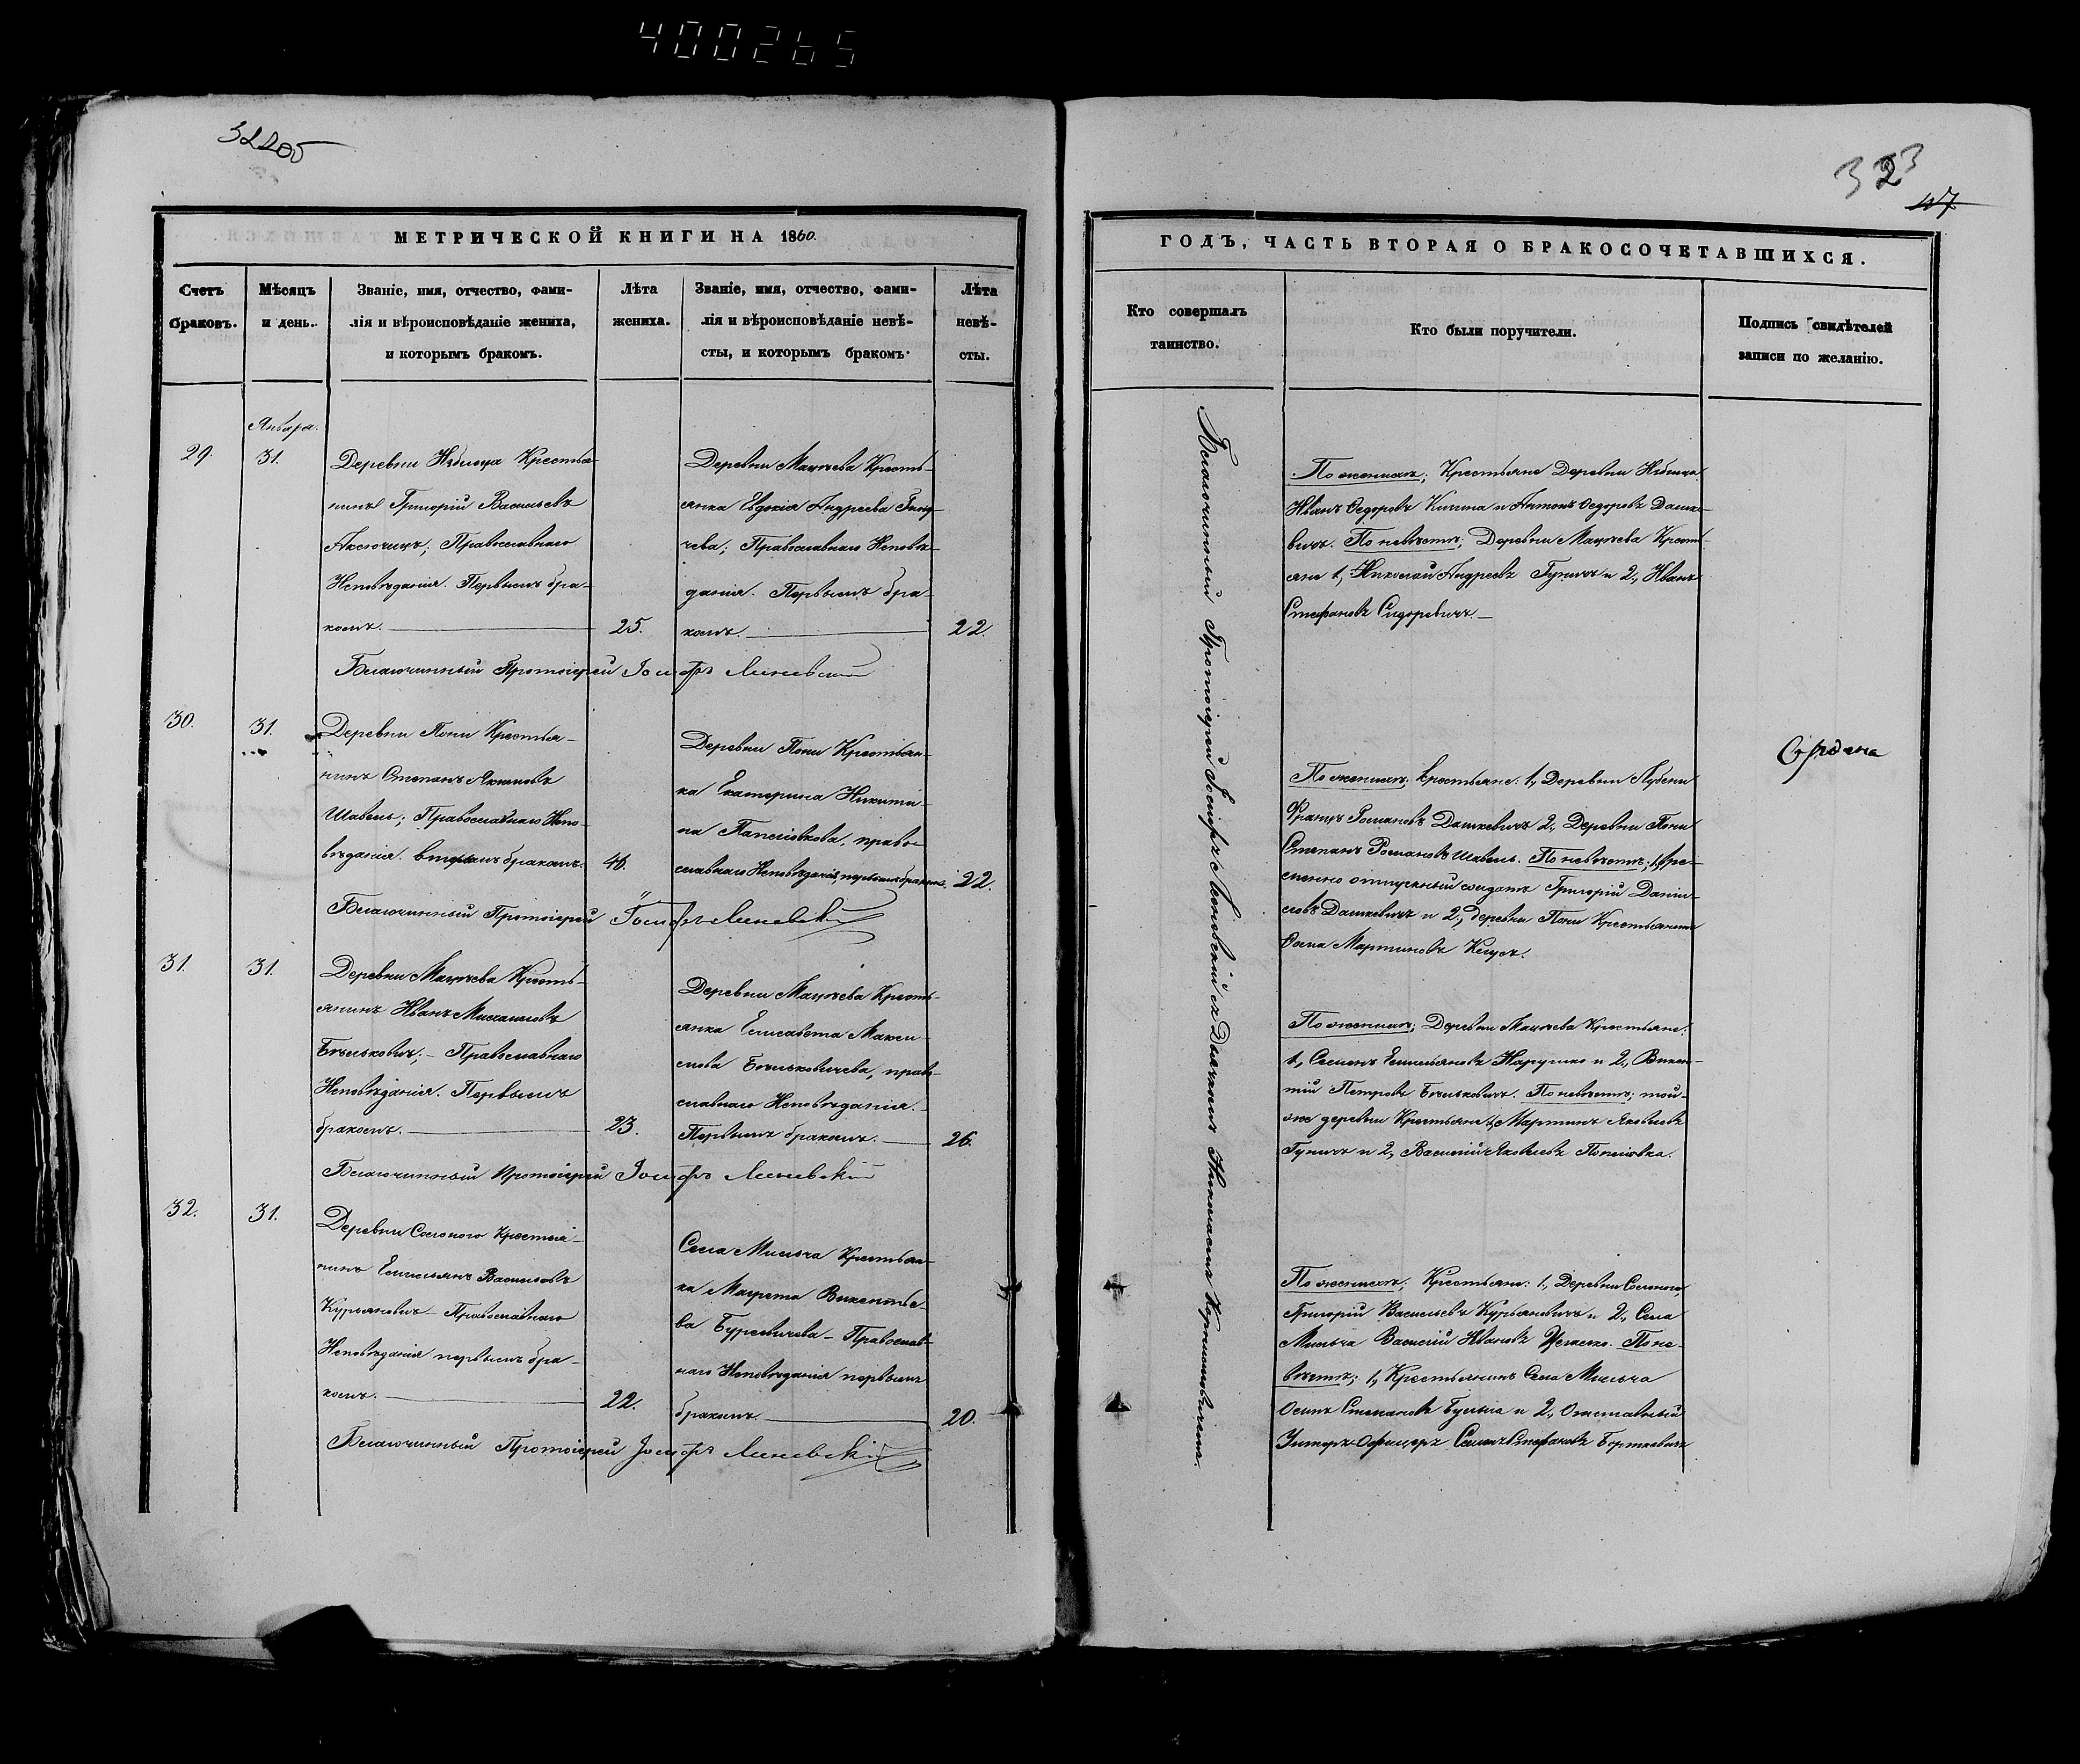 400265
32205
МЕТРИЧЕСКОЙ КНИГИ НА 1860.
Счетъ браковъ.
Мѣсяцъ и день.
Званіе, имя, отчество, фами-
лія и вѣроисповѣданіе жениха,
и которымъ бракомъ.
Лѣта
жениха.
Званіе, имя, отчество, фами-
лія и вѣроисповѣданіе невѣ-
сты, и которымъ бракомъ.
Лѣта
невѣ-
сты.
Января.
29.
31.
Деревни Нѣбышa Крестья-
нинъ Григорій Васильевъ
Аксючицъ; Православнаго
Исповѣданія. Первымъ бра-
комъ.
25.
Деревни Мацѣева Кресть-
янка Евдокія Андреева Гини-
чева; Православнаго Исповѣ-
данія. Первымъ бра-
комъ.
22.
Благочинный Протоіерей Іосифъ Линевскій
30.
31.
Деревни Пони Крестья-
нинъ Степанъ Якимовъ
Шавель; Православнаго Испо-
вѣданія. вторымъ бракомъ.
46.
Деревни Пони Крестьян-
ка Екатерина Никити-
на Папсіовкова, право-
славнаго Исповѣданія, первымъ бракомъ.
22.
Благочинный Протоіерей Іосифъ Линевскій
31.
31.
Деревни Мацѣева Кресть-
янинъ Иванъ Михаиловъ
Бѣльковичъ; – Православнаго
Исповѣданія. Первымъ
бракомъ.
23.
Деревни Мацѣева Кресть-
янка Елисавета Макси-
мова Бѣльковичева, право-
славнаго Исповѣданія.
Первымъ бракомъ.
26.
Благочинный Протоіерей Іосифъ Линевскій
32.
31.
Деревни Солоного Крестья-
нинъ Емельянъ Васильевъ
Курьяновичъ – Православнаго
Исповѣданія первымъ бра-
комъ.
22.
Села Мильча Крестьян-
ка Марта Викентье-
ва Буревичева – Православ-
наго Исповѣданія первымъ
бракомъ.
20.
Благочинный Протоіерей Іосифъ Линевскій
323
ГОДЪ, ЧАСТЬ ВТОРАЯ О БРАКОСОЧЕТАВШИХСЯ.
Кто совершалъ
таинство.
Кто были поручители.
Подпись свидѣтелей
записи по желанію.
Благочинный Протоіерей Іосифъ Линевскій съ Дьячкомъ Николаемъ
По женихѣ; Крестьяне Деревни
Иванъ Ѳедоровъ Кичина и Антонъ Ѳедоровъ Дашке-
вичъ. По невѣстѣ; Деревни Мацѣева Кресть-
яне 1, Николай Андреевъ Гуничъ и 2, Иванъ
Стефановъ Сидоревичъ.
По женихѣ; крестьяне: 1, Деревни
Францъ Романовъ Дашкевичъ 2, Деревни Пони
Степанъ Романовъ Шавель. По невѣстѣ; 1, Вре-
менно отпускный солдатъ Григорій Дани-
ловъ Дашкевичъ и 2, деревни Пони Крестьянинъ
Ѳома Мартиновъ
По женихѣ; Деревни Мацѣева Крестьяне:
1, Семенъ Емельяновъ Нарушко и 2, Викен-
тій Петровъ Бѣльковичъ. По невѣстѣ; той-
же деревни Крестьяне 1, Мартинъ Яковлевъ
Гуничъ и 2, Василій Яковлевъ
По женихѣ; Крестьяне: 1, Деревни Солоного
Григорій Васильевъ Курьяновичъ и 2, Села
Мильча Василій Ивановъ По не-
вѣстѣ; 1, Крестьянинъ Села Мильча
Осипъ Степановъ и 2, Отставный
Унтеръ-Офицеръ Семенъ Стефановъ Борткевичъ